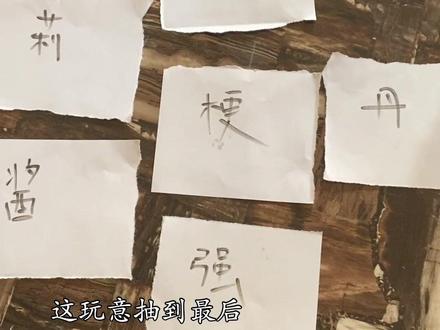 莉
梗
丹
酱
强
这玩意抽到最后